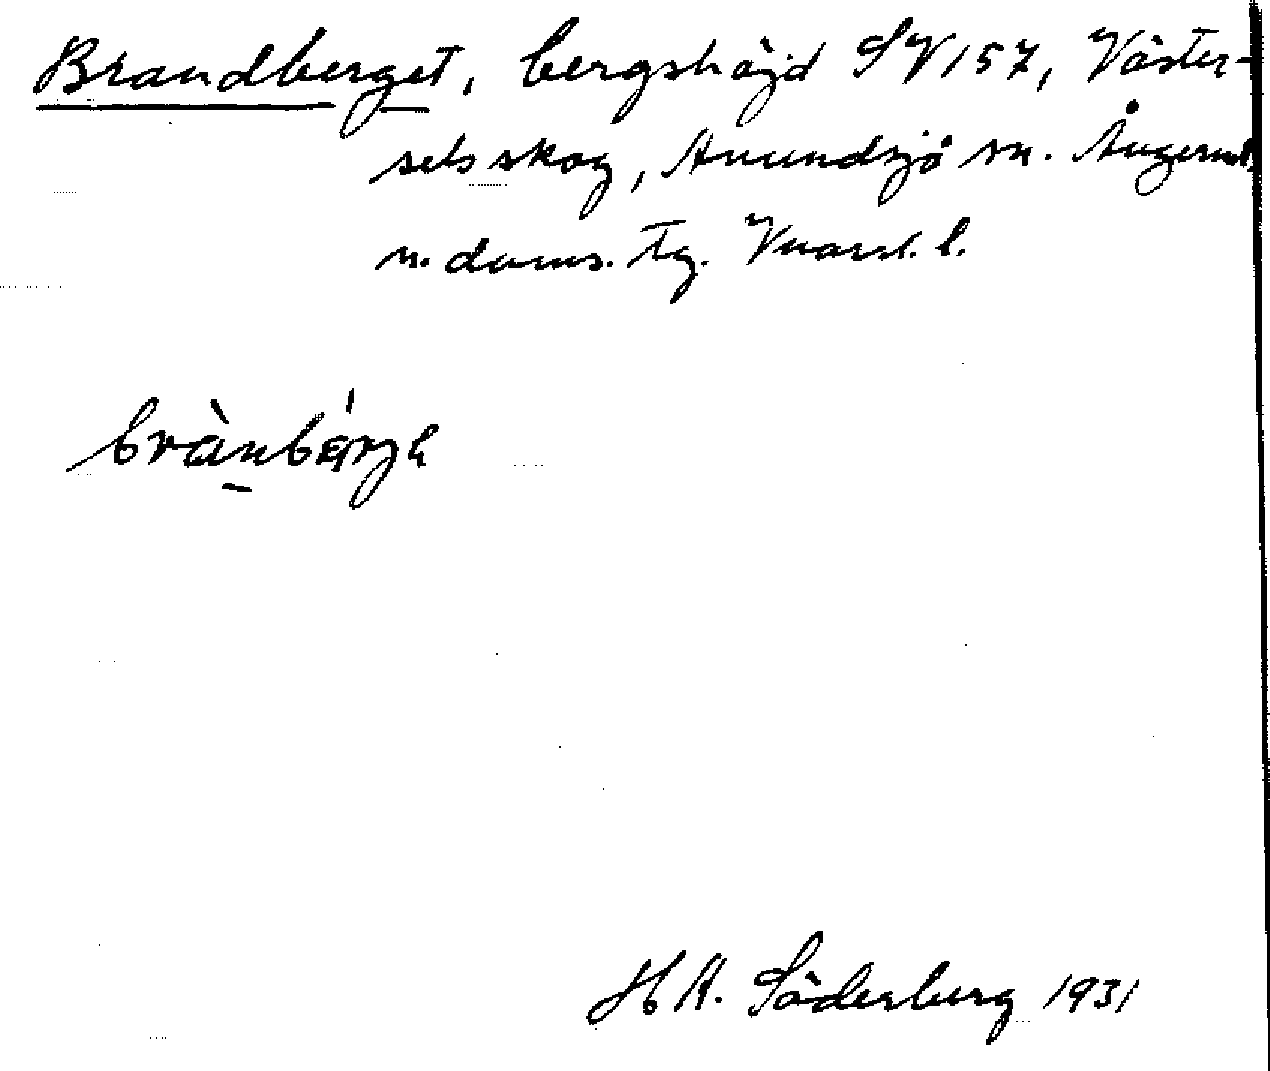 Brandberget, bergshöjd SV157, Väster-
sels skog, Anundsjö sn. Ångerml,
n. doms. tg. Vnorrl. l.
brànbárjh
H A. Söderberg 1931